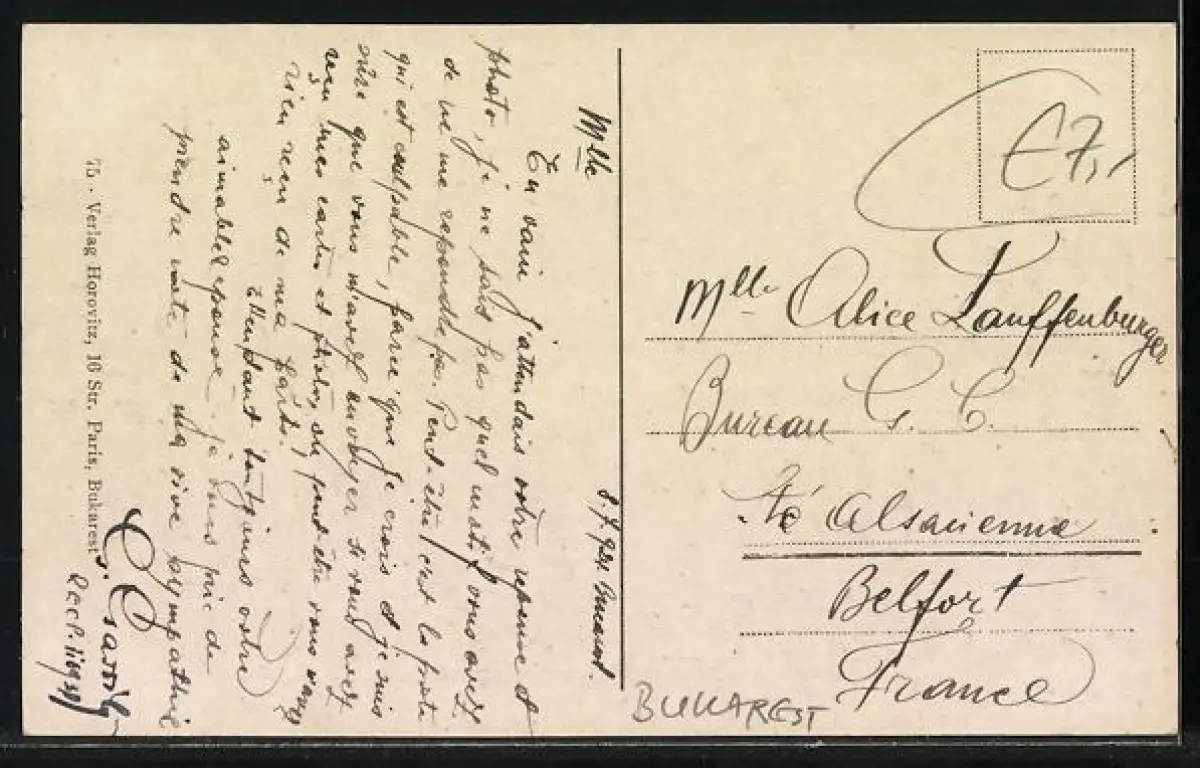 Mlle
8.7.921. Bucarest.
En vain j'attendais votre reponse et
photo, je ne sais pas quel motif vous avez
de ne me repondre pas. Peut-être c'est la poste
qui est culpable, parce que je crois et je suis
sûre que vous m'avez envoyer si vous avez
reçu mes cartes et photo, ou peut être vous n'avez
rien reçu de ma part.
Attendant toujours votre
aimable reponse je vous prie de
prendre note de ma vive sympathie
75 - Verlag Horovitz, 16 Str. Paris, Bukarest
€7,-
Mlle Alice Lauffenburger
Bureau G. C.
Sté Alsacienne
Belfort
France
BUKAREST